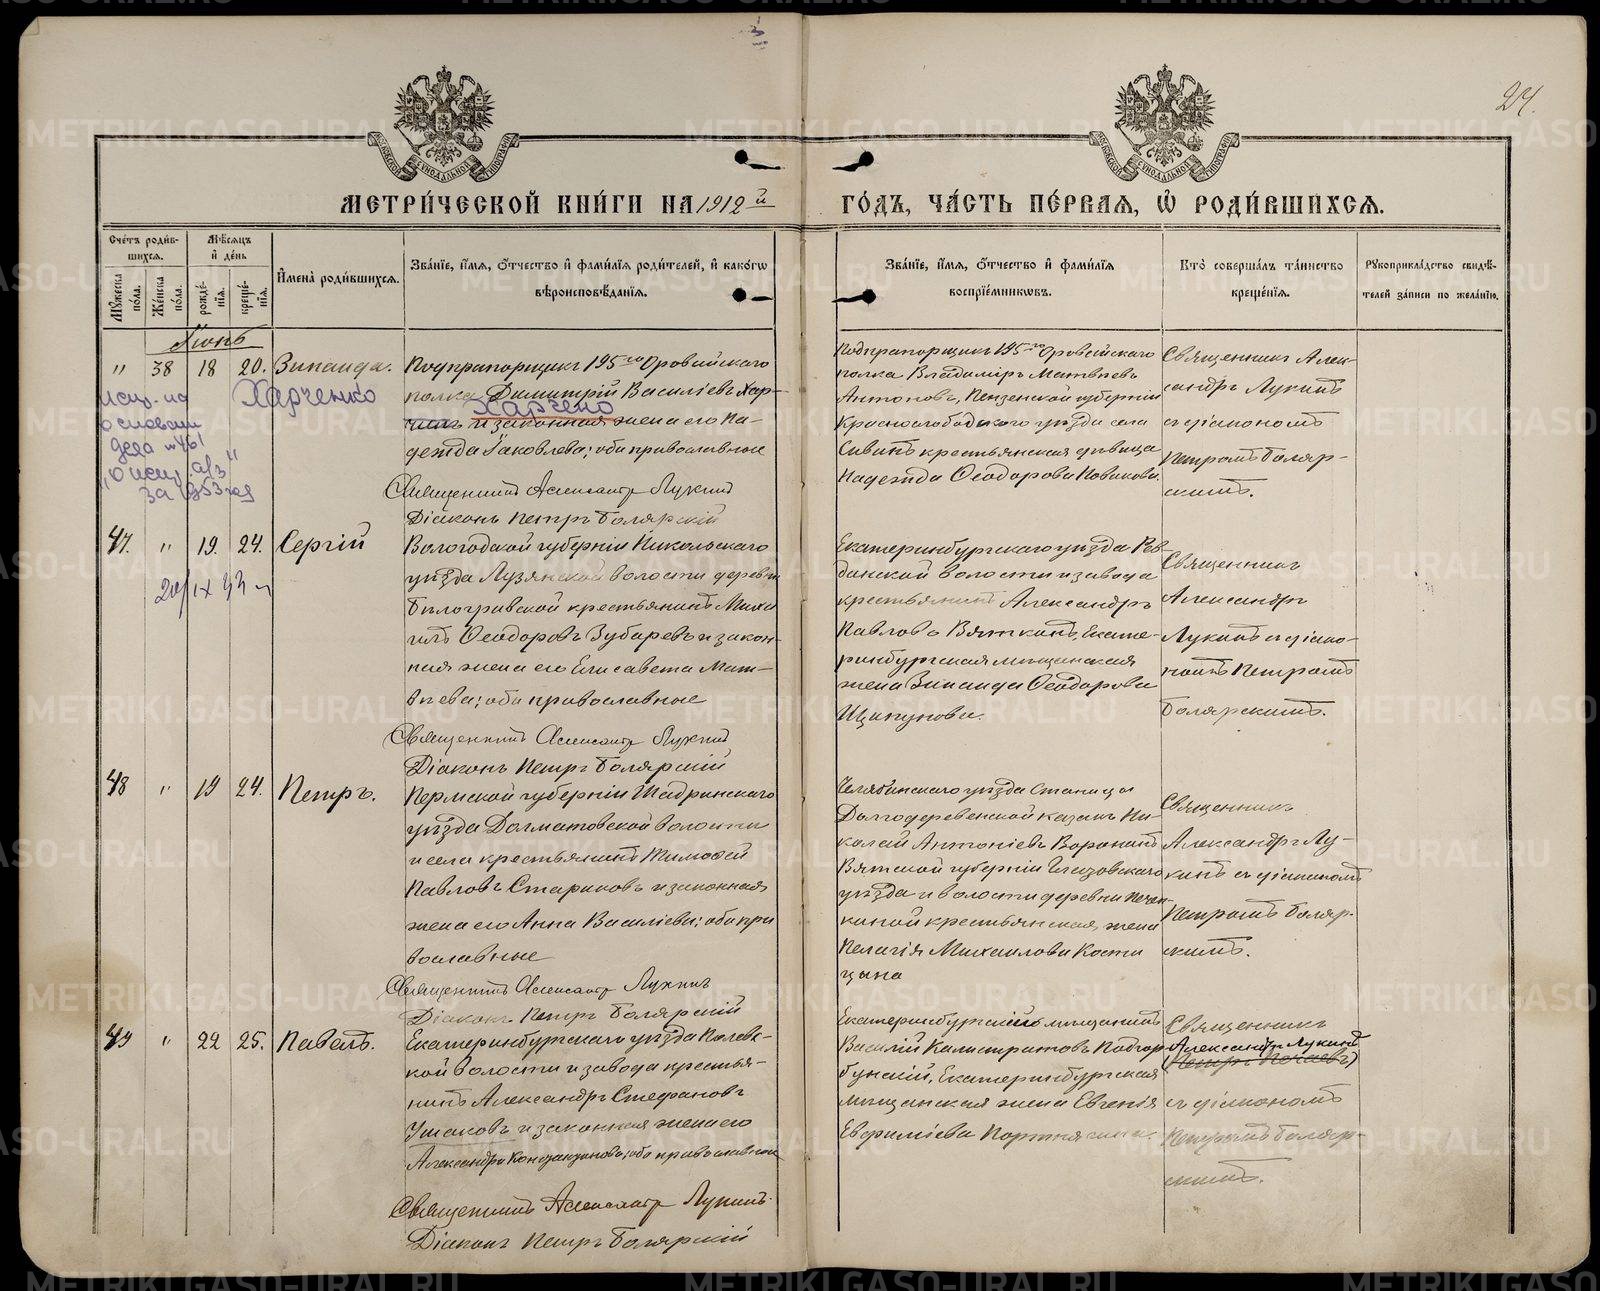 24.
МЕТРИ́ЧЕСКОЙ КНИ́ГИ НА 1912 й
ГО́ДЪ, ЧА́СТЬ ПЕ́РВАЯ, Ѡ҆ РОДИ́ВШИХСЯ.
Сче́тъ роди́вшихся.
Мѣ́сяцъ и҆ де́нь
Му́жеска по́ла.
Же́нска по́ла.
рожде́нїя.
креще́нїя.
И҆мена̀ роди́вшихся.
Зва́нїе, и҆́мя, ѻ҆́тчество и҆ фами́лїя роди́телей, и҆ како́гѡ
вѣроисповѣ́данїя.
Зва́нїе, и҆́мя, ѻ҆́тчество и҆ фами́лїя
воспрїе́мникѡвъ.
Кто̀ соверша́лъ та́инство
креще́нїя.
Рꙋкоприкла́дство свидѣ́-
телей за́писи по жела́нїю.
Іюнь
" 38 18 20. Зинаида.
Харченко
Подпрапорщикъ 195го Оровайскаго
полка Димитрій Василіевъ Хар-
Харчено
и законная жена его На-
дежда Іаковлева; оба православные
Священникъ Александръ Лукинъ
Діаконъ Петръ Болярскій
Подпрапорщикъ 195го Оровайскаго
полка Владиміръ Матвѣевъ
Антоновъ, Пензенской губерніи
Краснослободскаго уѣзда села
крестьянская дѣвица
Надежда Ѳеодорова Новикова.
Священникъ Алек-
сандръ Лукинъ
съ діакономъ
Петромъ Боляр-
скимъ.
47. " 19. 24. Сергій
Вологодской губерніи Никольскаго
уѣзда Лузянской волости деревни
крестьянинъ Миха
илъ Ѳеодоровъ Зубаревъ и закон-
ная жена его Елисавета Мат-
вѣева; оба православные
Священникъ Александръ Лукинъ
Діаконъ Петръ Болярскій
Екатеринбургскаго уѣзда Рев-
динской волости и завода
крестьянинъ Александръ
Павловъ Вяткинъ, Екате-
ринбургская мѣщанская
жена Зинаида Ѳеодорова
Щипунова.
Священникъ
Александръ
Лукинъ съ діако-
номъ Петромъ
Болярскимъ.
48 " 19 24. Петръ.
Пермской губерніи Шадринскаго
уѣзда Далматовской волости
и села крестьянинъ Тимофей
Павловъ Стариковъ и законная
жена его Анна Василіева; оба пра
вославные
Священникъ Александръ Лукинъ
Діаконъ Петръ Болярскій
Челябинскаго уѣзда станицы
Долгодеревенской казакъ Ни-
колай Антоніевъ Воронинъ
Вятской губерніи Глазовскаго
уѣзда и волости деревни
крестьянская жена
Пелагія Михаилова Кости
цына
Священникъ
Александръ Лу-
кинъ съ діакономъ
Петромъ Боляр-
скимъ.
49 " 22 25. Павелъ.
Екатеринбургскаго уѣзда Полевс-
кой волости и завода крестья-
нинъ Александръ Стефановъ
Ушаковъ и законная жена его
Александра Константинова; оба православные
Священникъ Александръ Лукинъ
Діаконъ Петръ Болярскій
Екатеринбургскій мѣщанинъ
Василій Калистратовъ Подгор
бунскій, Екатеринбургская
мѣщанская жена Евгенія
Евфиміева Портнягина.
Священникъ
Александръ Лукинъ
съ діакономъ
Петромъ Боляр-
скимъ.
METRIKI.GASO-URAL.RU